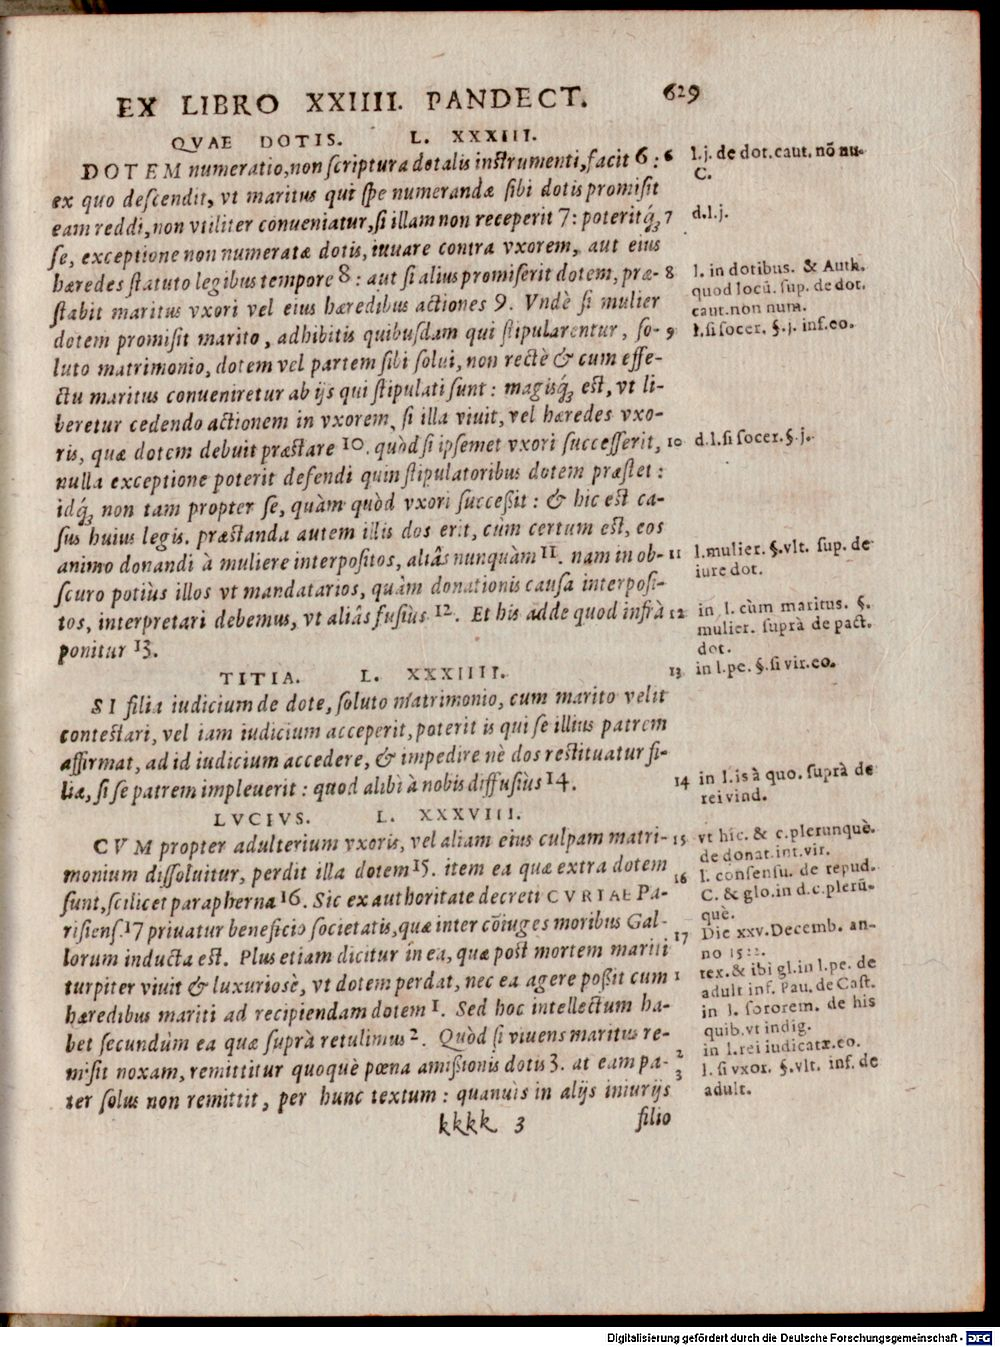 EX LIBRO XXIIII. PANDECT. 629
QVAE DOTIS. L. XXXIII.
DOTEM numeratio, non scriptura dotalis instrumenti, facit 6 :
ex quo descendit, vt maritus qui spe numerandæ sibi dotis promisit
eam reddi, non vtiliter conueniatur, si illam non receperit 7 : poteritq́;
se, exceptione non numeratæ dotis, iuuare contra vxorem, aut eius
hæredes statuto legibus tempore 8 : aut si alius promiserit dotem, præ-
stabit maritus vxori vel eius hæredibus actiones 9. Vndè si mulier
dotem promisit marito, adhibitis quibusdam qui stipularentur, so-
luto matrimonio, dotem vel partem sibi solui, non rectè & cum effe-
ctu maritus conueniretur ab ijs qui stipulati sunt : magisq́; est, vt li-
beretur cedendo actionem in vxorem, si illa viuit, vel hæredes vxo-
ris, quæ dotem debuit præstare 10. quòd si ipsemet vxori successerit,
nulla exceptione poterit defendi quin stipulatoribus dotem præstet :
idq́; non tam propter se, quàm quòd vxori successit : & hic est ca-
sus huius legis. præstanda autem illis dos erit, cùm certum est, eos
animo donandi à muliere interpositos, aliâs nunquàm 11. nam in ob-
scuro potiùs illos vt mandatarios, quàm donationis causa interposi-
tos, interpretari debemus, vt aliâs fusiùs 12. Et his adde quod infrà
ponitur 13.
TITIA. L. XXXIIII.
SI filia iudicium de dote, soluto matrimonio, cum marito velit
contestari, vel iam iudicium acceperit, poterit is qui se illius patrem
affirmat, ad id iudicium accedere, & impedire nè dos restituatur fi-
liæ, si se patrem impleuerit : quod alibì à nobis diffusiùs 14.
LVCIVS. L. XXXVIII.
CVM propter adulterium vxoris, vel aliam eius culpam matri-
monium dissoluitur, perdit illa dotem 15. item ea quæ extra dotem
sunt, scilicet parapherna 16. Sic ex authoritate decreti CVRIAE Pa-
risiens. 17 priuatur beneficio societatis, quæ inter cõiuges moribus Gal-
lorum inducta est. Plus etiam dicitur in ea, quæ post mortem mariti
turpiter viuit & luxuriosè, vt dotem perdat, nec ea agere possit cum
hæredibus mariti ad recipiendam dotem 1. Sed hoc intellectum ha-
bet secundùm ea quæ suprà retulimus 2. Quòd si viuens maritus re-
misit noxam, remittitur quoquè pœna amissionis dotis 3. at eam pa-
ter solus non remittit, per hunc textum : quanuis in alijs iniurijs
kkkk 3 filio
6 l.j. de dot. caut. nõ nu.
C.
7 d.l.j.
8 l. in dotibus. & Auth.
quod locũ. sup. de dot.
caut. non num.
9 l. si socer. §.j. inf. eo.
10 d.l. si socer. §.j.
11 l. mulier. §. vlt. sup. de
iure dot.
12 in l. cùm maritus. §.
mulier. suprà de pact.
dot.
13 in l. pe. §. si vir. eo.
14 in l. is à quo. suprà de
rei vind.
15 vt hic. & c. plerunquè.
de donat. int. vir.
16 l. consensu. de repud.
C. & glo. in d. c. plerũ-
què.
17 Die xxv. Decemb. an-
no 1522.
1 tex. & ibi gl. in l. pe. de
adult inf. Pau. de Cast.
in l. sororem. de his
quib. vt indig.
2 in l. rei iudicatæ. eo.
3 l. si vxor. §. vlt. inf. de
adult.
Digitalisierung gefördert durch die Deutsche Forschungsgemeinschaft - DFG